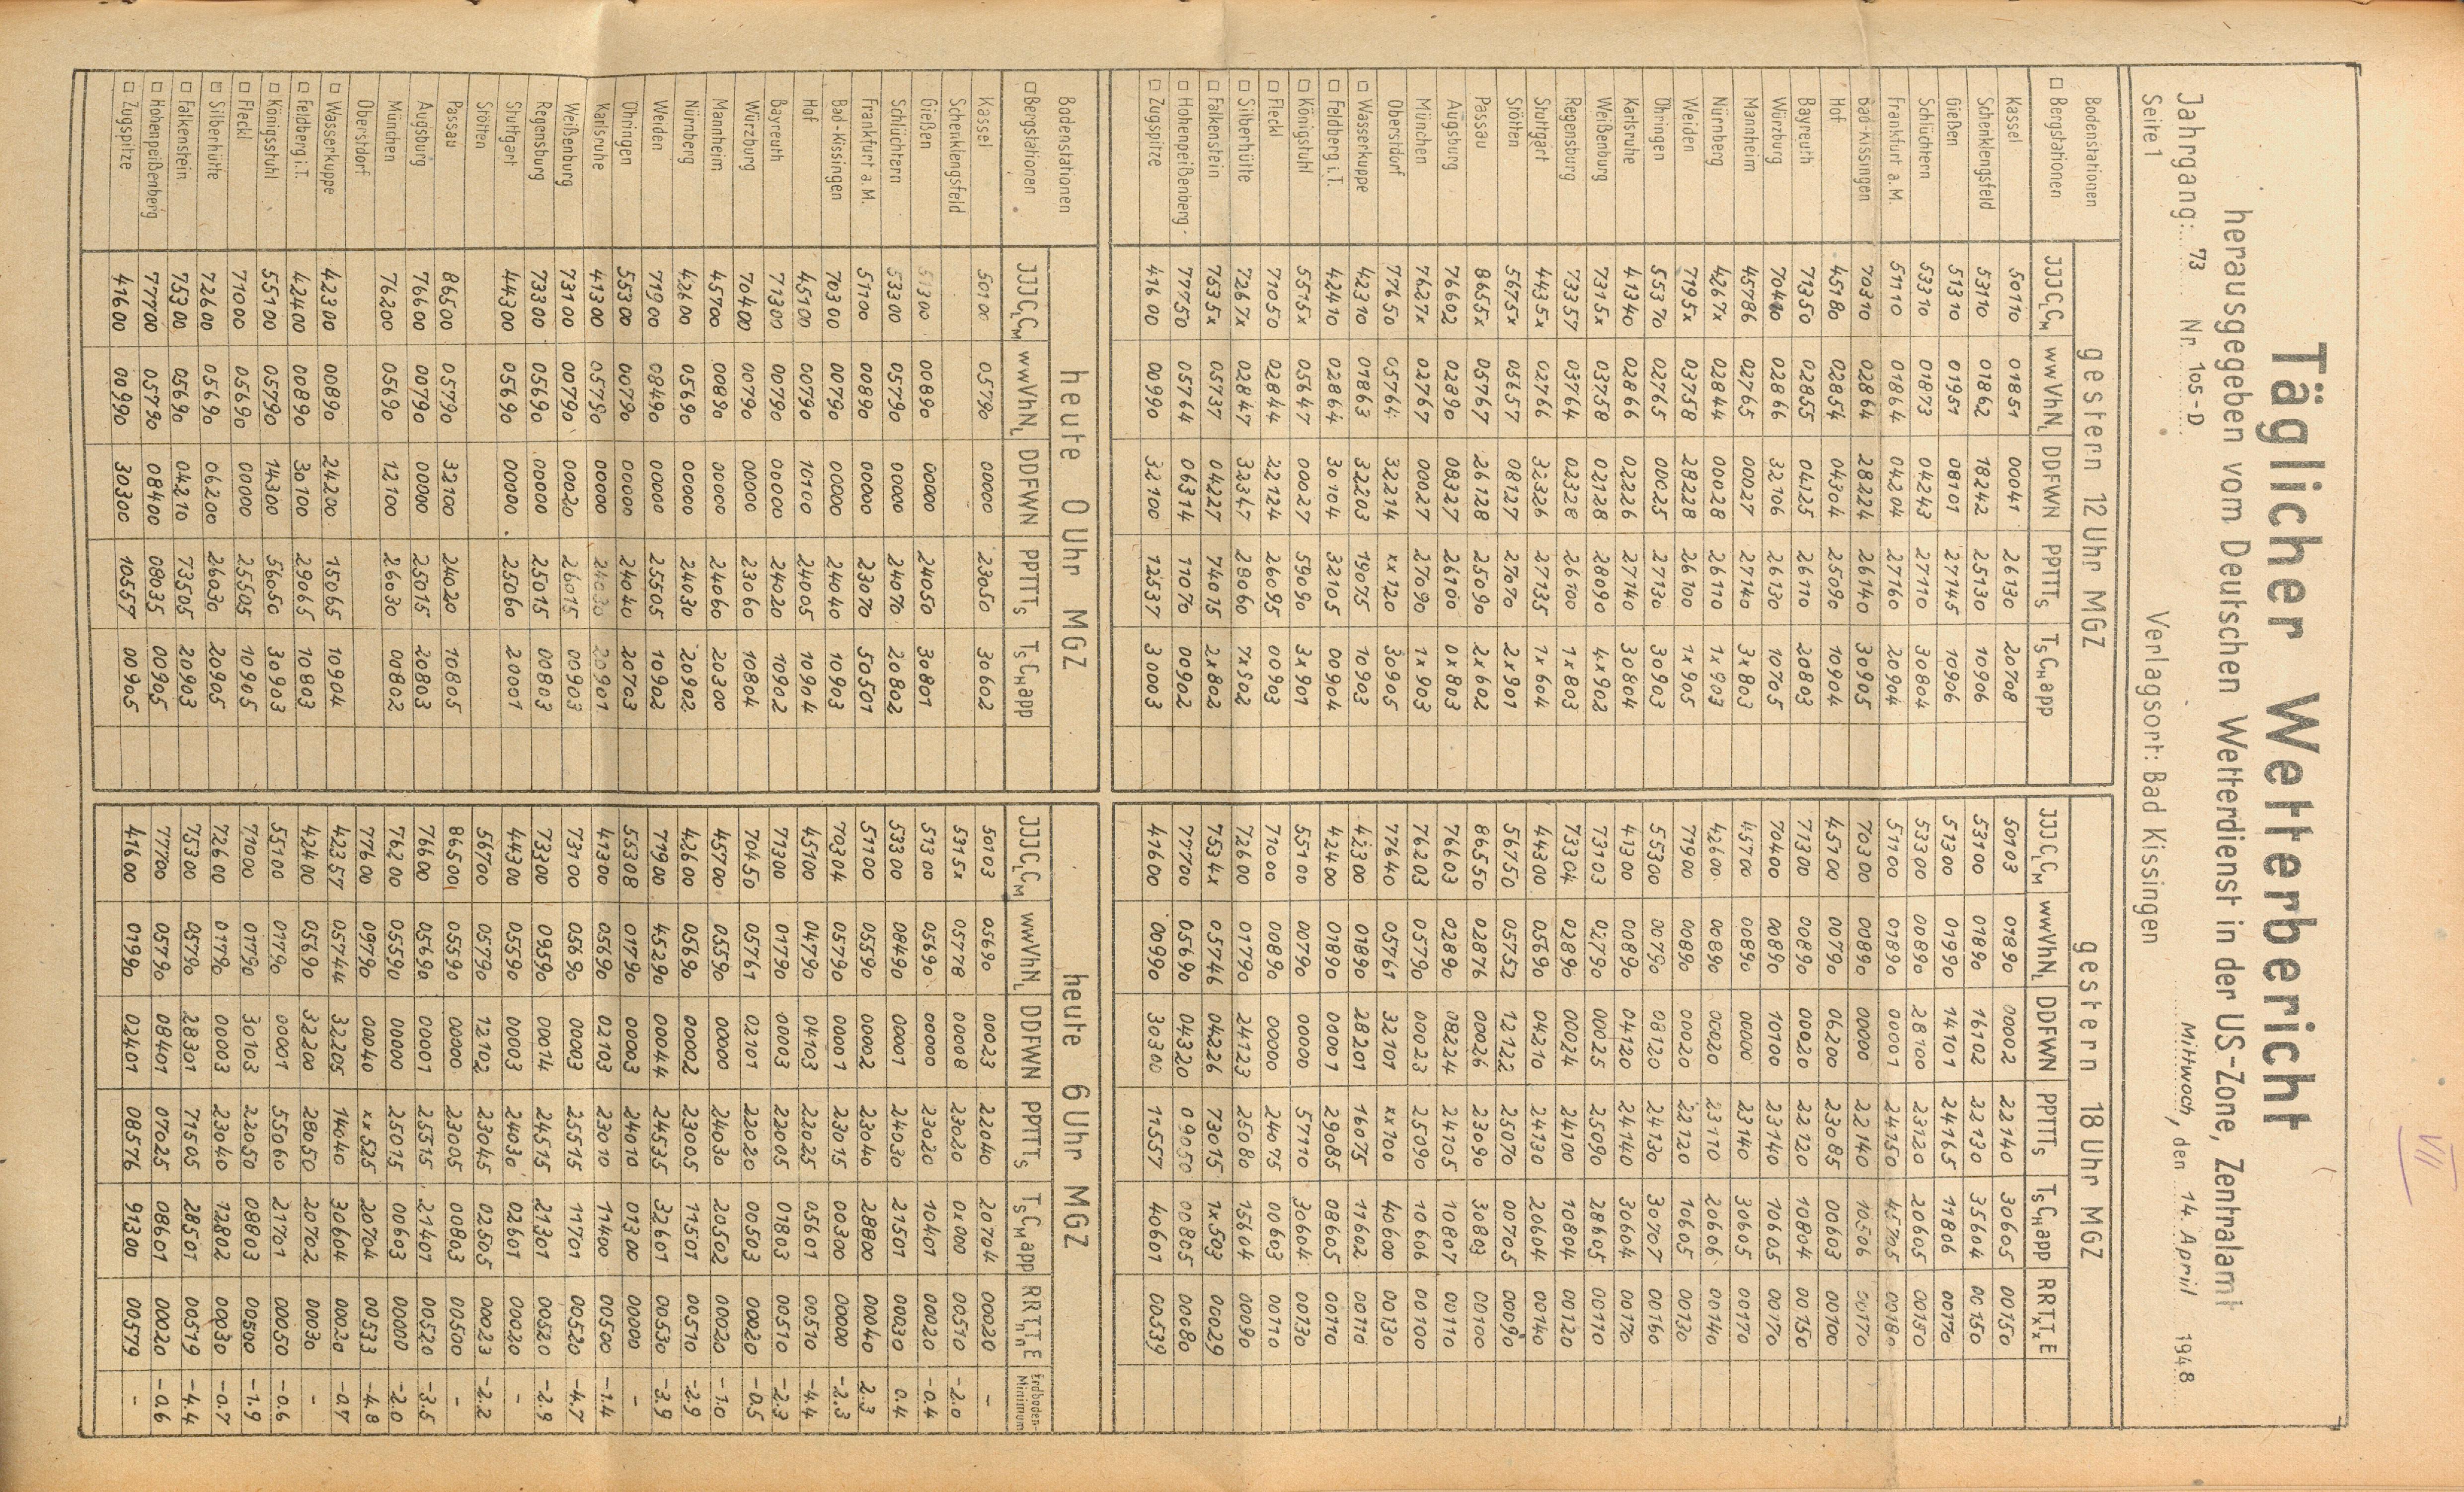 Täglicher Wetterbericht
herausgegeben vom Deutschen Wetterdienst in der US-Zone, Zentralamt
Jahrgang: 73 Nr. 105-D Mittwoch, den 14. April 1948
Seite 1 Verlagsort: Bad Kissingen
Bodenstationen gestern 12 Uhr MGZ gestern 18 Uhr MGZ
□ Bergstationen JJJCLCM wwVhNL DDFWN PPTTTS TSCHapp JJJCLCM wwVhNL DDFWN PPTTTS TSCHapp RRTxTxE
Kassel 50110 01851 00041 26130 20708 50103 01890 00002 22140 30605 00150
Schenklengsfeld 53110 01862 18242 25130 10906 53100 01890 16102 22130 35604 00150
Gießen 51310 01951 08101 27145 10906 51300 01990 14101 24165 11806 00170
Schlüchtern 53310 01873 04243 27110 30804 53300 00890 28100 23120 20605 00150
Frankfurt a.M. 51110 01864 04204 27160 20904 51100 01890 00001 24150 45705 00180
Bad-Kissingen 70310 02864 28224 26140 30905 70300 00890 00000 22140 10506 00170
Hof 45180 02854 04304 25090 10904 45100 00790 06200 23085 00603 00100
Bayreuth 71350 02855 04125 26110 20803 71300 00890 00020 22120 10804 00150
Würzburg 70410 02866 32106 26130 10705 70400 00890 10100 23140 10605 00170
Mannheim 45786 02765 00027 27140 3x803 45700 00890 00000 23140 30605 00170
Nürnberg 4267x 02844 00028 26110 1x903 42600 00890 00020 23110 20606 00140
Weiden 7195x 03758 28228 26100 1x905 71900 00890 00020 22120 10605 00130
Öhringen 55370 02765 00025 27130 30903 55300 00790 08120 24130 30707 00160
Karlsruhe 41340 02866 02226 27140 30804 41300 00890 04120 24140 30604 00170
Weißenburg 7315x 03758 02128 28090 4x902 73103 02790 00025 25090 28605 00110
Regensburg 73357 03764 02328 26100 1x803 73304 02890 00024 24100 10804 00120
Stuttgart 4435x 02766 32326 27135 1x604 44300 05690 04210 24130 20604 00140
Stötten 5675x 03657 08127 27070 2x901 56750 05752 12122 25070 00705 00090
Passau 8655x 05767 26128 25090 2x602 86550 02876 00026 23090 30803 00100
Augsburg 76602 02890 08327 26100 0x803 76603 02890 08224 24105 10807 00110
München 7627x 03767 00027 27090 1x903 76203 05790 00023 25090 10606 00100
Oberstdorf 77650 05764 32214 xx120 30905 77640 05761 32101 xx100 40600 00130
□ Wasserkuppe 42310 01863 32203 19075 10903 42300 01890 28201 16075 11602 00110
□ Feldberg i.T. 42410 02864 30104 32105 00904 42400 01890 00001 29085 08605 00110
□ Königstuhl 5515x 03647 00027 59090 3x901 55100 00790 00000 57110 30604 00130
□ Fleckl 71050 02844 22124 26095 00903 71000 00890 00000 24075 00663 00110
□ Silberhütte 7267x 02847 32347 28060 7x502 72600 01790 24123 25080 15604 00090
□ Falkenstein 7535x 05737 04227 74015 2x802 7534x 05746 04226 73015 1x503 00029
□ Hohenpeißenberg 77750 05764 06314 11070 00902 77700 05690 04320 09050 00805 00080
□ Zugspitze 41600 00990 32100 12537 30003 41600 00990 30300 11557 40601 00539
Bodenstationen heute 0 Uhr MGZ heute 6 Uhr MGZ
□ Bergstationen JJJCLCM wwVhNL DDFWN PPTTTS TSCHapp JJJCLCM wwVhNL DDFWN PPTTTS TSCHapp RRTnTnE Erdboden-Minimum
Kassel 50100 05790 00000 23050 30602 50103 05690 00023 22040 20704 00020 -
Schenklengsfeld 5315x 05778 00008 23020 0x000 00510 -2.0
Gießen 51300 00890 00000 24050 30801 51300 05690 00000 23020 10401 00020 -0.4
Schlüchtern 53300 05790 00000 24070 20802 53300 08490 00001 24030 21501 00030 0.4
Frankfurt a.M. 51100 00890 00000 23070 50501 51100 05590 00002 23040 28800 00040 2.3
Bad-Kissingen 70300 00790 00000 24040 10903 70304 05790 00001 23015 00300 00000 -2.3
Hof 45100 00790 10100 24005 10904 45100 04790 04103 22025 05601 00510 -4.4
Bayreuth 71300 00790 00000 24020 10902 71300 01790 00003 22005 01803 00510 -2.3
Würzburg 70400 00790 00000 23060 10804 70450 05761 02101 22020 00503 00020 -0.5
Mannheim 45700 00890 00000 24060 20300 45700 05590 00000 24030 20502 00020 -1.0
Nürnberg 42600 05690 00000 24030 20902 42600 05690 00002 23005 11501 00510 -2.9
Weiden 71900 08490 00000 25505 10902 71900 45290 00044 24535 32601 00530 -3.9
Öhringen 55300 00790 00000 24040 20703 55308 01790 00003 24010 01300 00000 -
Karlsruhe 41300 05790 00000 24030 20901 41300 05690 02103 23010 11400 00500 -1.4
Weißenburg 73100 00790 00020 26015 00903 73100 05690 00003 25515 11701 00520 -4.7
Regensburg 73300 05690 00000 25015 00803 73300 09590 00014 24515 21301 00520 -2.9
Stuttgart 44300 05690 00000 25060 20001 44300 05590 00003 24030 02601 00020 -
Stötten 56700 05790 12102 23045 02505 00023 -2.2
Passau 86500 05790 32100 24020 10805 86500 05590 00000 23005 00803 00500 -
Augsburg 76600 00790 00000 25015 20803 76600 05690 00001 25515 21401 00520 -3.5
München 76200 05690 12100 26030 00802 76200 05590 00000 25015 00603 00000 -2.0
Oberstdorf 77600 09790 00040 xx525 20704 00533 -4.8
□ Wasserkuppe 42300 00890 24200 15065 10904 42357 05744 32205 14040 30604 00020 -0.7
□ Feldberg i.T. 42400 00890 30100 29065 10803 42400 05690 32200 28050 20702 00030 -
□ Königsstuhl 55100 05790 14300 56050 30903 55100 01790 00001 55060 21701 00050 -0.6
□ Fleckl 71000 05690 00000 25505 10905 71000 01790 30103 22050 08803 00500 -1.9
□ Silberhütte 72600 05690 06200 26030 20905 72600 01790 00003 23040 12802 00030 -0.7
□ Falkenstein 75300 05690 04210 73505 20903 75300 05790 28301 71505 28501 00519 -4.4
□ Hohenpeißenberg 77700 05790 08400 08035 00905 77700 05790 08401 07025 08601 00020 -0.6
□ Zugspitze 41600 00990 30300 10557 00905 41600 01990 02401 08576 91300 00579 -